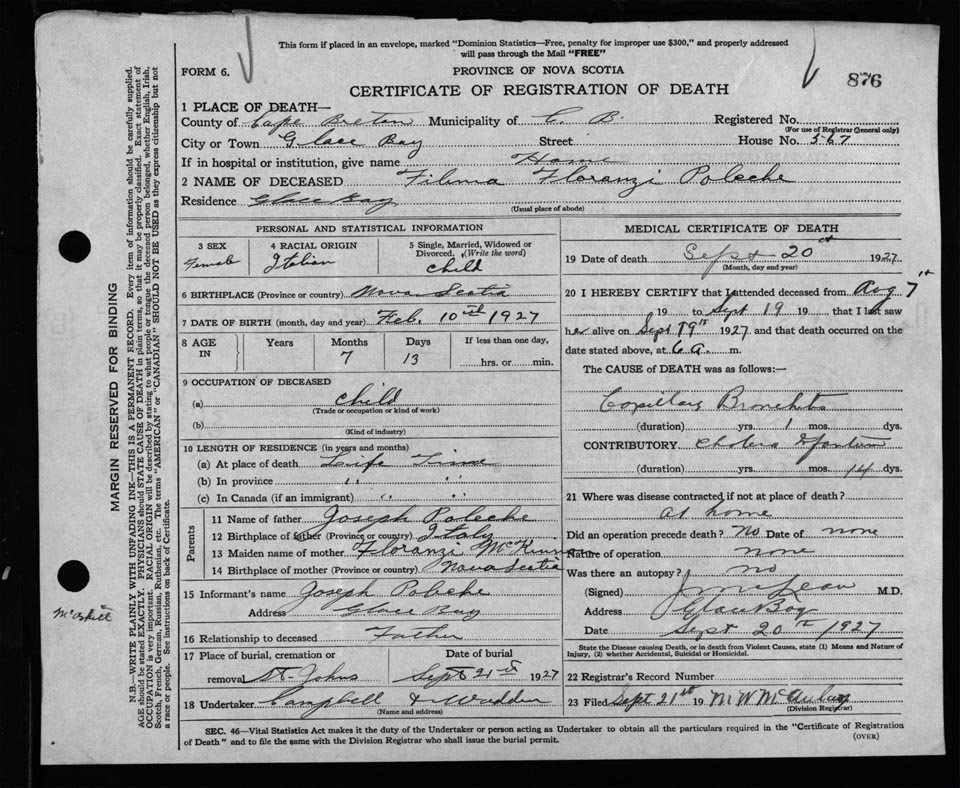 This form if placed in an envelope, marked "Dominion Statistics—Free, penalty for improper use $300," and properly addressed
will pass through the Mail "FREE"
FORM 6.
PROVINCE OF NOVA SCOTIA
876
CERTIFICATE OF REGISTRATION OF DEATH
1 PLACE OF DEATH—
County of Cape Breton Municipality of C. B. Registered No.
(For use of Registrar General only)
City or Town Glace Bay Street House No. 567
If in hospital or institution, give name Home
2 NAME OF DECEASED Filma Floranzi Poleche
Residence Glace Bay
(Usual place of abode)
PERSONAL AND STATISTICAL INFORMATION
3 SEX Female 4 RACIAL ORIGIN Italian 5 Single, Married, Widowed or Divorced. (Write the word) child
6 BIRTHPLACE (Province or country) Nova Scotia
7 DATE OF BIRTH (month, day and year) Feb. 10th 1927
8 AGE IN Years Months 7 Days 13 If less than one day, hrs. or min.
9 OCCUPATION OF DECEASED
(a) child
(Trade or occupation or kind of work)
(b)
(Kind of industry)
10 LENGTH OF RESIDENCE (in years and months)
(a) At place of death Life Time
(b) In province " "
(c) In Canada (if an immigrant) " "
Parents
11 Name of father Joseph Poleche
12 Birthplace of father (Province or country) Italy
13 Maiden name of mother Floranzi
14 Birthplace of mother (Province or country) Nova Scotia
15 Informant's name Joseph Poleche
Address Glace Bay
16 Relationship to deceased Father
17 Place of burial, cremation or removal St. Johns Date of burial Sept 21st 1927
18 Undertaker Campbell &
(Name and address)
MEDICAL CERTIFICATE OF DEATH
19 Date of death Sept 20th 1927
(Month, day and year)
20 I HEREBY CERTIFY that I attended deceased from Aug 7th
19 to Sept 19 19 that I last saw
her alive on Sept 19th 1927 and that death occurred on the
date stated above, at 6 a. m.
The CAUSE of DEATH was as follows:—
Capillary Bronchitis
(duration) yrs. 1 mos. dys.
CONTRIBUTORY Cholera Infantum
(duration) yrs. mos. 14 dys.
21 Where was disease contracted if not at place of death?
At home
Did an operation precede death? No Date of none
Nature of operation none
Was there an autopsy? no
(Signed) J McLean M.D.
Address Glace Bay
Date Sept 20th 1927
State the Disease causing Death, or in death from Violent Causes, state (1) Means and Nature of
Injury, (2) whether Accidental, Suicidal or Homicidal.
22 Registrar's Record Number
23 Filed Sept 21st 19
(Division Registrar)
SEC. 46—Vital Statistics Act makes it the duty of the Undertaker or person acting as Undertaker to obtain all the particulars required in the "Certificate of Registration
of Death" and to file the same with the Division Registrar who shall issue the burial permit.
(OVER)
MARGIN RESERVED FOR BINDING
N.B.—WRITE PLAINLY WITH UNFADING INK—THIS IS A PERMANENT RECORD. Every item of information should be carefully supplied.
AGE should be stated EXACTLY. PHYSICIANS should STATE CAUSE OF DEATH in plain terms, so that it may be properly classified. Exact statement of
OCCUPATION is very important. RACIAL ORIGIN will be described by stating to what people or tongue the deceased person belonged, whether English, Irish,
Scotch, French, German, Russian, Ruthenian, etc. The terms "AMERICAN" or "CANADIAN" SHOULD NOT BE USED as they express citizenship but not
a race or people. See instructions on back of Certificate.